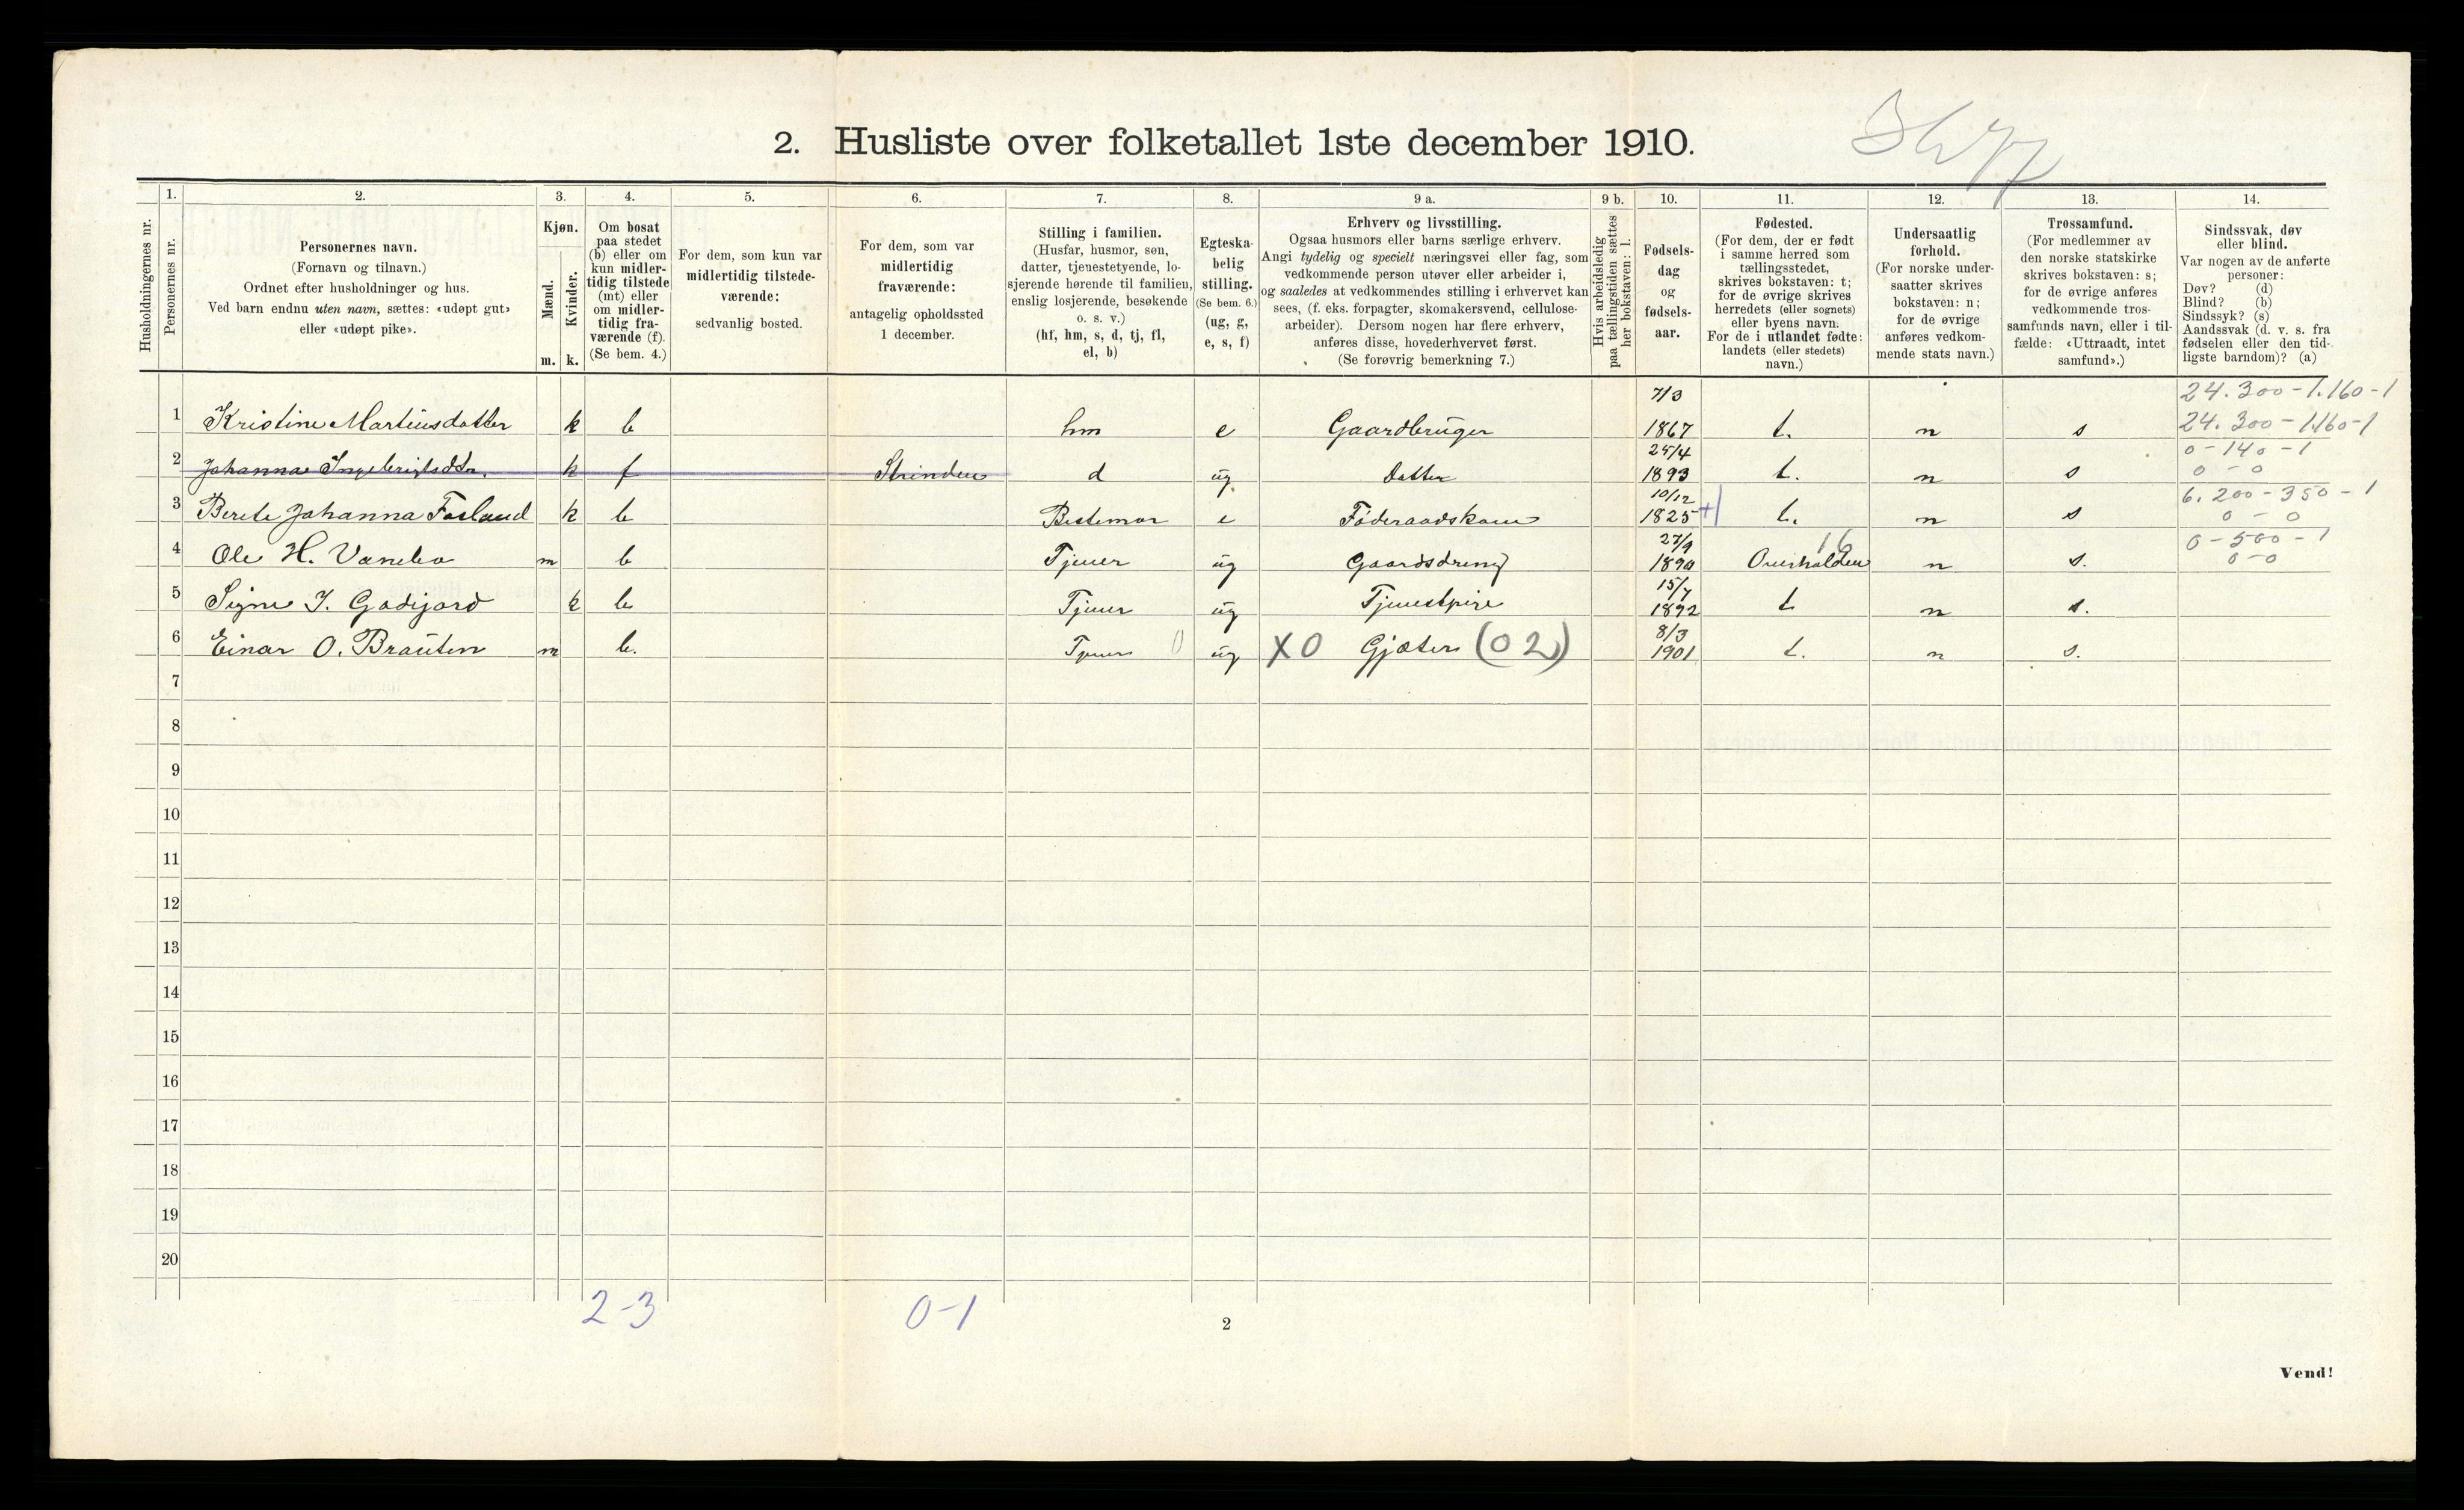 2. Husliste over folketallet 1ste december 1910.
Husholdningernes nr.
1.
Personernes nr.
2.
Personernes navn.
(Fornavn og tilnavn.)
Ordnet efter husholdninger og hus.
Ved barn endnu uten navn, sættes: «udøpt gut»
eller «udøpt pike».
3.
Kjøn.
Mænd.
Kvinder.
m. k.
4.
Om bosat
paa stedet
(b) eller om
kun midler-
tidig tilstede
(mt) eller
om midler-
tidig fra-
værende (f).
(Se bem. 4.)
5.
For dem, som kun var
midlertidig tilstede-
værende:
sedvanlig bosted.
6.
For dem, som var
midlertidig
fraværende:
antagelig opholdssted
1 december.
7.
Stilling i familien.
(Husfar, husmor, søn,
datter, tjenestetyende, lo-
sjerende hørende til familien,
enslig losjerende, besøkende
o. s. v.)
(hf, hm, s, d, tj, fl,
el, b)
8.
Egteska-
belig
stilling.
(Se bem. 6.)
(ug, g,
e, s, f)
9 a.
Erhverv og livsstilling.
Ogsaa husmors eller barns særlige erhverv.
Angi tydelig og specielt næringsvei eller fag, som
vedkommende person utøver eller arbeider i,
og saaledes at vedkommendes stilling i erhvervet kan
sees, (f. eks. forpagter, skomakersvend, cellulose-
arbeider). Dersom nogen har flere erhverv,
anføres disse, hovederhvervet først.
(Se forøvrig bemerkning 7.)
9 b.
Hvis arbeidsledig
paa tællingstiden sættes
her bokstaven: l.
10.
Fødsels-
dag
og
fødsels-
aar.
11.
Fødested.
(For dem, der er født
i samme herred som
tællingsstedet,
skrives bokstaven: t;
for de øvrige skrives
herredets (eller sognets)
eller byens navn.
For de i utlandet fødte:
landets (eller stedets)
navn.)
12.
Undersaatlig
forhold.
(For norske under-
saatter skrives
bokstaven: n;
for de øvrige
anføres vedkom-
mende stats navn.)
13.
Trossamfund.
(For medlemmer av
den norske statskirke
skrives bokstaven: s;
for de øvrige anføres
vedkommende tros-
samfunds navn, eller i til-
fælde: «Uttraadt, intet
samfund».)
14.
Sindssvak, døv
eller blind.
Var nogen av de anførte
personer:
Døv? (d)
Blind? (b)
Sindssyk? (s)
Aandssvak (d. v. s. fra
fødselen eller den tid-
ligste barndom)? (a)
7/3 24.300-1.160-1
1 Kristine Martinsdatter k b hm e Gaardbruger 1867 t. n s 24.300-1160-1
25/4 0-140-1
2 Johanna Ingebrigtsdtr. k f Strinden d ug Datter 1893 t. n s 0-0
10/12 6.200-350-1
3 Berete Johanna Fosland k b Bestemor e Føderaadskone 1825 +1 t. n s 0-0
27/9 16 0-500-1
4 Ole H. Vanebo m b Tjener ug Gaardsdreng 1890 Overhalden n s. 0-0
15/7
5 Signe J. Gadijord k b Tjener ug Tjenestpige 1892 t n s.
8/3
6 Einar O. Brauten m b. Tjener 0 ug X0 Gjæter (02) 1901 t. n s.
7
8
9
10
11
12
13
14
15
16
17
18
19
20
2-3 0-1
2
Vend!